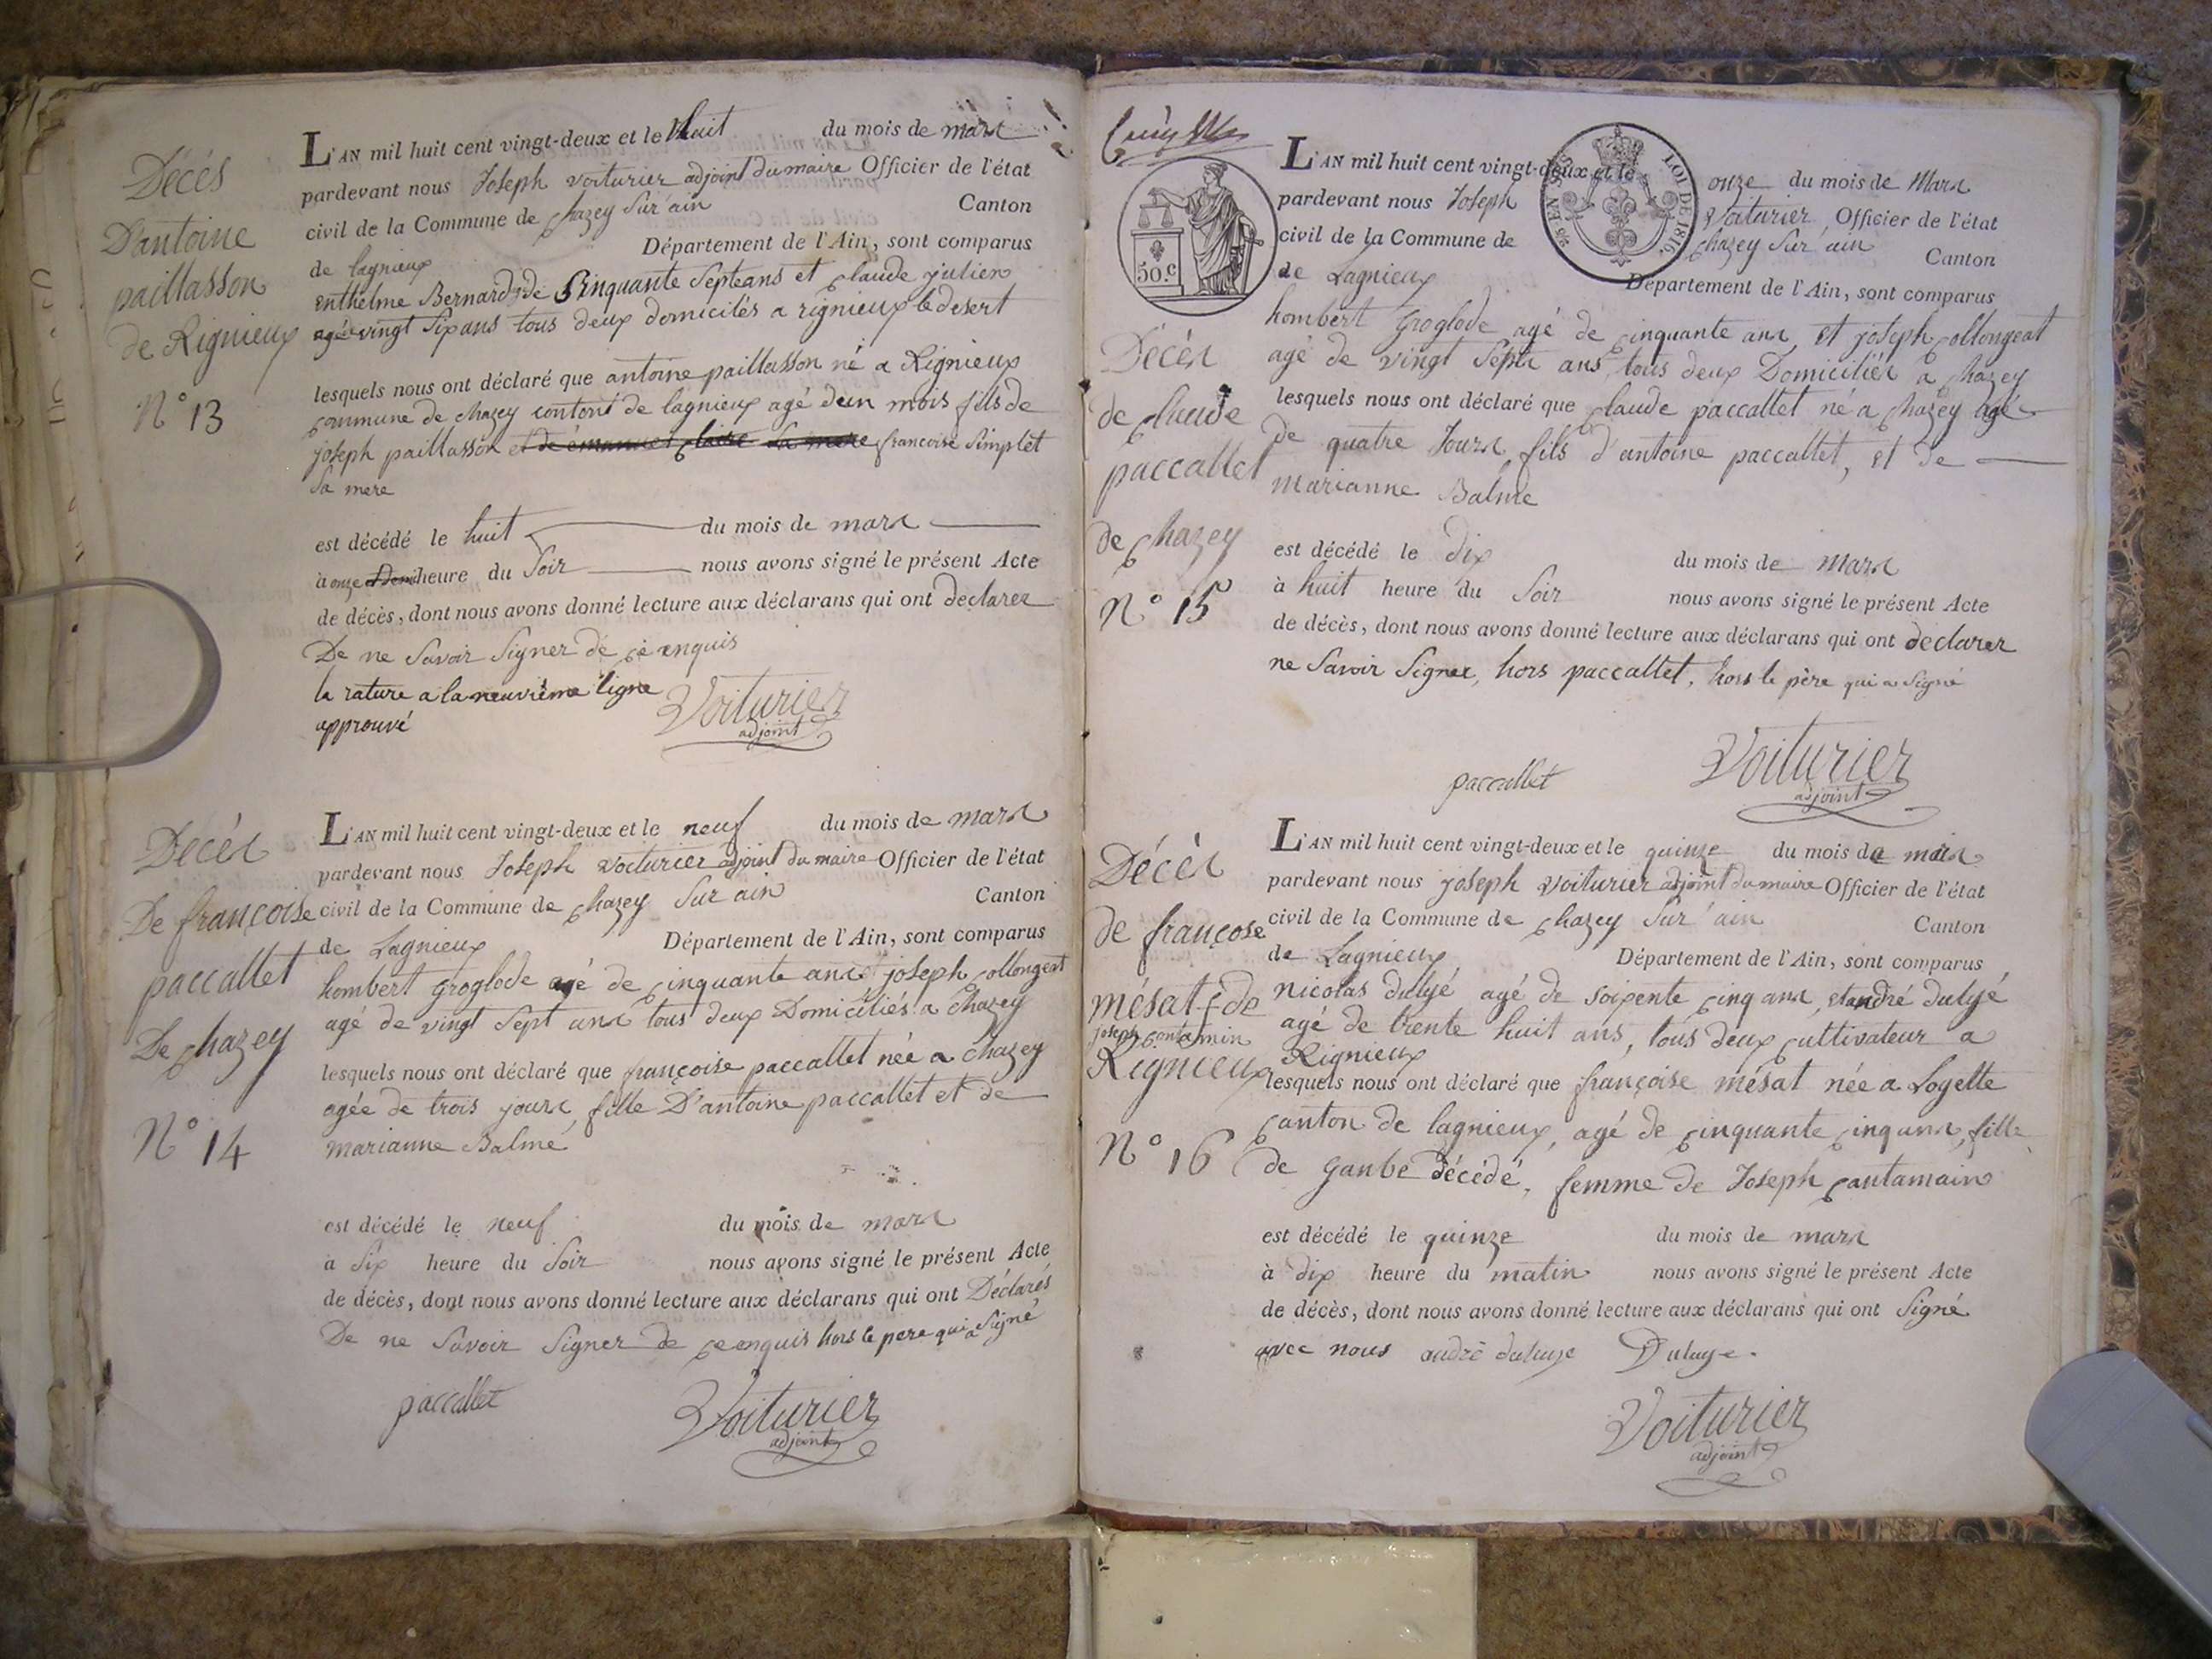 Décés
D'antoine
paillasson
de Rignieux
N° 13
L'AN mil huit cent vingt-deux et le huit du mois de mars
pardevant nous Joseph voiturier adjoint du maire Officier de l'état
civil de la Commune de chazey Sur ain Canton
de lagnieux Département de l'Ain, sont comparus
enthelme Bernard de Cinquante Septeans et claude julien
agé vingt Six ans tous deux domicilés a rignieux le desert
lesquels nous ont déclaré que antoine paillasson né a Rignieux
commune de chazey contont de lagnieux agé d'un mois fils de
joseph paillasson francoise Simplet
Sa mere
est décédé le huit du mois de mars
à onze heure du Soir nous avons signé le présent Acte
de décès, dont nous avons donné lecture aux déclarans qui ont declarer
De ne Savoir Signer de ce enquis
la rature a la neuvième ligne
approuvé
Voiturier
adjoint
Décés
De françoise
paccallet
De chazey
N° 14
L'AN mil huit cent vingt-deux et le neuf du mois de mars
pardevant nous Joseph voiturier adjoint du maire Officier de l'état
civil de la Commune de chazey Sur ain Canton
de Lagnieux Département de l'Ain, sont comparus
hombert Groglode agé de cinquante ans joseph collongeat
agé de vingt Sept ans tous deux Domiciliés a chazey
lesquels nous ont déclaré que françoise paccallet née a chazey
agée de trois jours fille D'antoine paccallet et de
marianne Balmé
est décédé le neuf du mois de mars
à Six heure du Soir nous avons signé le présent Acte
de décès, dont nous avons donné lecture aux déclarans qui ont Déclarés
De ne Savoir Signer de ce enquis hors le pere qui a Signé
paccallet
Voiturier
adjoint
50.c
LOI DE 1816.
Décés
de claude
paccallet
de chazey
N° 15
L'AN mil huit cent vingt-deux et le onze du mois de Mars
pardevant nous Joseph Voiturier Officier de l'état
civil de la Commune de chazey Sur ain Canton
de Lagnieux Département de l'Ain, sont comparus
hombert Groglode agé de cinquante ans, et joseph collongeat
agé de vingt Septs ans, tous deux Domiciliés a chazey
lesquels nous ont déclaré que claude paccallet né a chazey agé
de quatre Jours fils d'antoine paccallet, et de
marianne Balme
est décédé le dix du mois de Mars
à huit heure du Soir nous avons signé le présent Acte
de décès, dont nous avons donné lecture aux déclarans qui ont declarer
ne Savoir Signer, hors paccallet, hors le père qui a Signé
paccallet
Voiturier
adjoint
Décés
de françose
mésat f de
joseph contamin
Rignieux
N° 16
L'AN mil huit cent vingt-deux et le quinze du mois de mars
pardevant nous joseph Voiturier adjoint du maire Officier de l'état
civil de la Commune de chazey Sur ain Canton
de Lagnieux Département de l'Ain, sont comparus
nicolas dulyé agé de soixente cinq ans, et andré dulyé
agé de trente huit ans, tous deux cultivateur a
Rignieux
lesquels nous ont déclaré que françoise mésat née a Loyette
canton de lagnieux, agé de cinquante cinq ans, fille
de ganbe décédé, femme de Joseph cantamain
est décédé le quinze du mois de mars
à dix heure du matin nous avons signé le présent Acte
de décès, dont nous avons donné lecture aux déclarans qui ont Signé
avec nous andré duluye Duluye.
Voiturier
adjoint